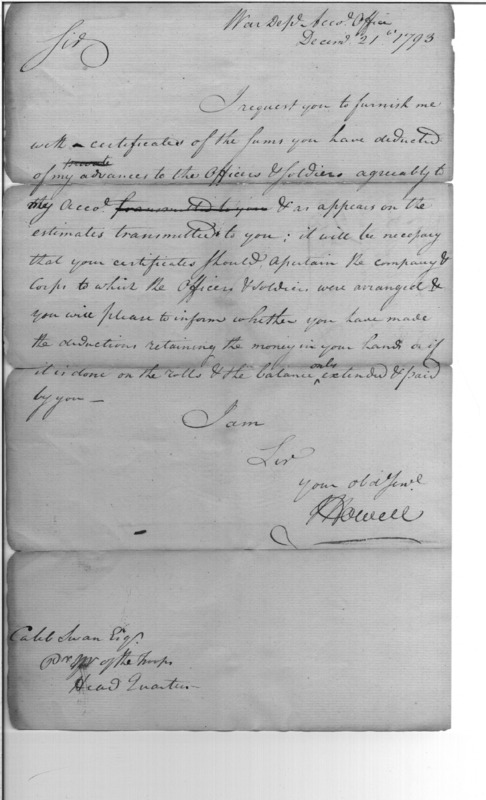 War Depᵗ Accoᵗˢ Office
Decemʳ 21ˢᵗ 1793
Sir
I request you to furnish me
with a certificate of the sums you have deducted
of my private advances to the Officers & Soldiers agreeably to
my Accoᵗ & as appears on the
estimates transmitted to you; it will be necessary
that your certificates should the company &
Corps to which the Officers & Soldiers were arranged &
you will please to inform whether you have made
the deductions retaining the money in your hands or if
it is done on the rolls & the balance only extended & paid
by you —
I am
Sir
your obdᵗ Servᵗ
J Howell
Caleb Swan Esqʳ
of the troops
Head Quarters